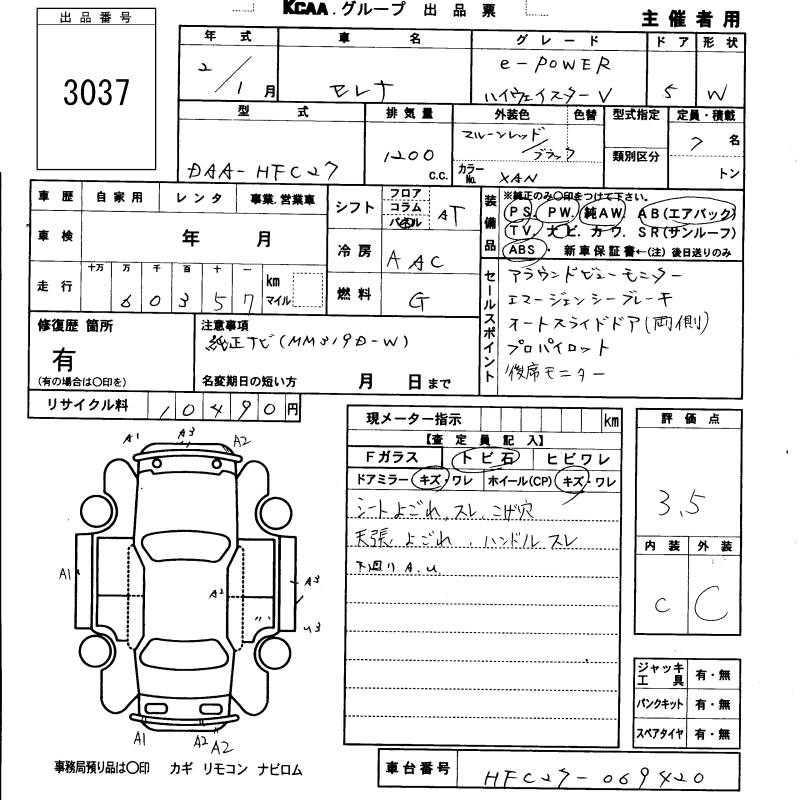 KCAA.グループ 出品票
主催者用
出品番号
3037
年式 車名 グレード ドア 形状
2/1月 セレナ e-POWER ハイウェイスターV 5 W
型式 排気量 外装色 色替 型式指定 定員・積載
類別区分
DAA-HFC27 1200 c.c. マルーンレッド/ブラック 7名
カラーNo. XAN トン
車歴 自家用 レンタ 事業.営業車
車検 年 月
走行 十万 万 千 百 十 一 km マイル
60357
シフト フロア コラム パネル AT
冷房 AAC
燃料 G
装備品 ※純正のみ○印をつけて下さい。
PS. PW. 純AW. AB(エアバック)
TV. ナビ. カワ. SR(サンルーフ)
ABS・ 新車保証書←(注)後日送りのみ
セールスポイント
アラウンドビューモニター
エマージェンシーブレーキ
オートスライドドア(両側)
プロパイロット
後席モニター
修復歴 箇所
有
(有の場合は○印を)
注意事項
純正ナビ(MM319D-W)
名変期日の短い方 月 日まで
リサイクル料 10490円
現メーター指示 km
【査定員記入】
Fガラス トビ石 ヒビワレ
ドアミラー キズ・ワレ ホイール(CP) キズ・ワレ
シートよごれ、スレ、こげ穴
天張よごれ、ハンドルスレ
下廻りA.U.
評価点
3.5
内装 外装
C C
ジャッキ工具 有・無
パンクキット 有・無
スペアタイヤ 有・無
A1 A3 A2
A1 A2 A3
U3
A1 A2 A2
事務局預り品は○印 カギ リモコン ナビロム
車台番号 HFC27-069420